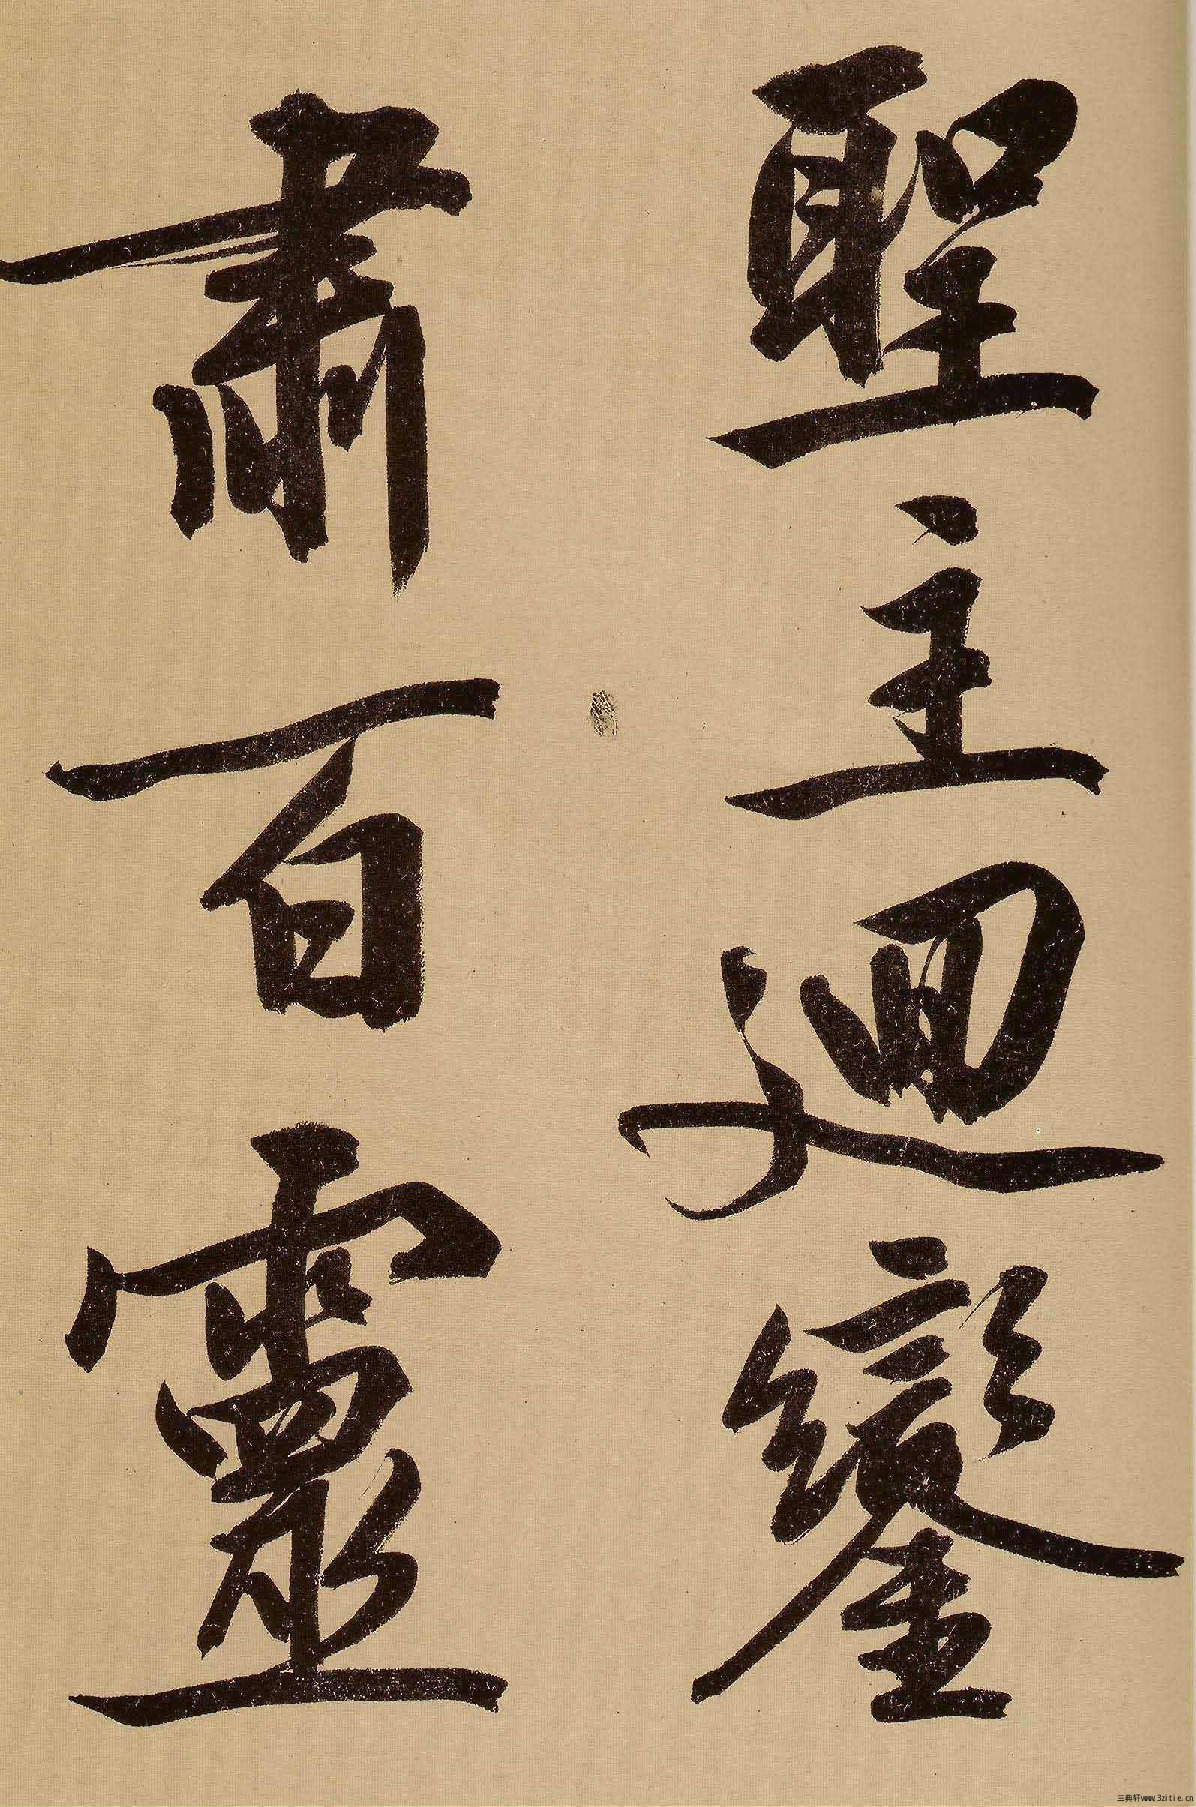 聖主迴鑾
肅百靈
三典轩www.3zitie.cn